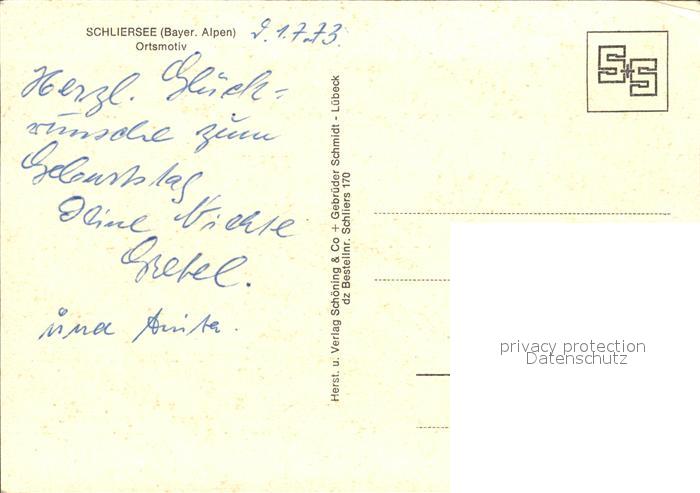 SCHLIERSEE (Bayer. Alpen)
Ortsmotiv
d. 1.7.73.
Herzl. Glück-
wünsche zum
Geburtstag
Deine Nichte
Gretel.
und Anita.
Herst. u. Verlag Schöning & Co + Gebrüder Schmidt - Lübeck
dz Bestellnr. Schliers 170
S+S
privacy protection
Datenschutz